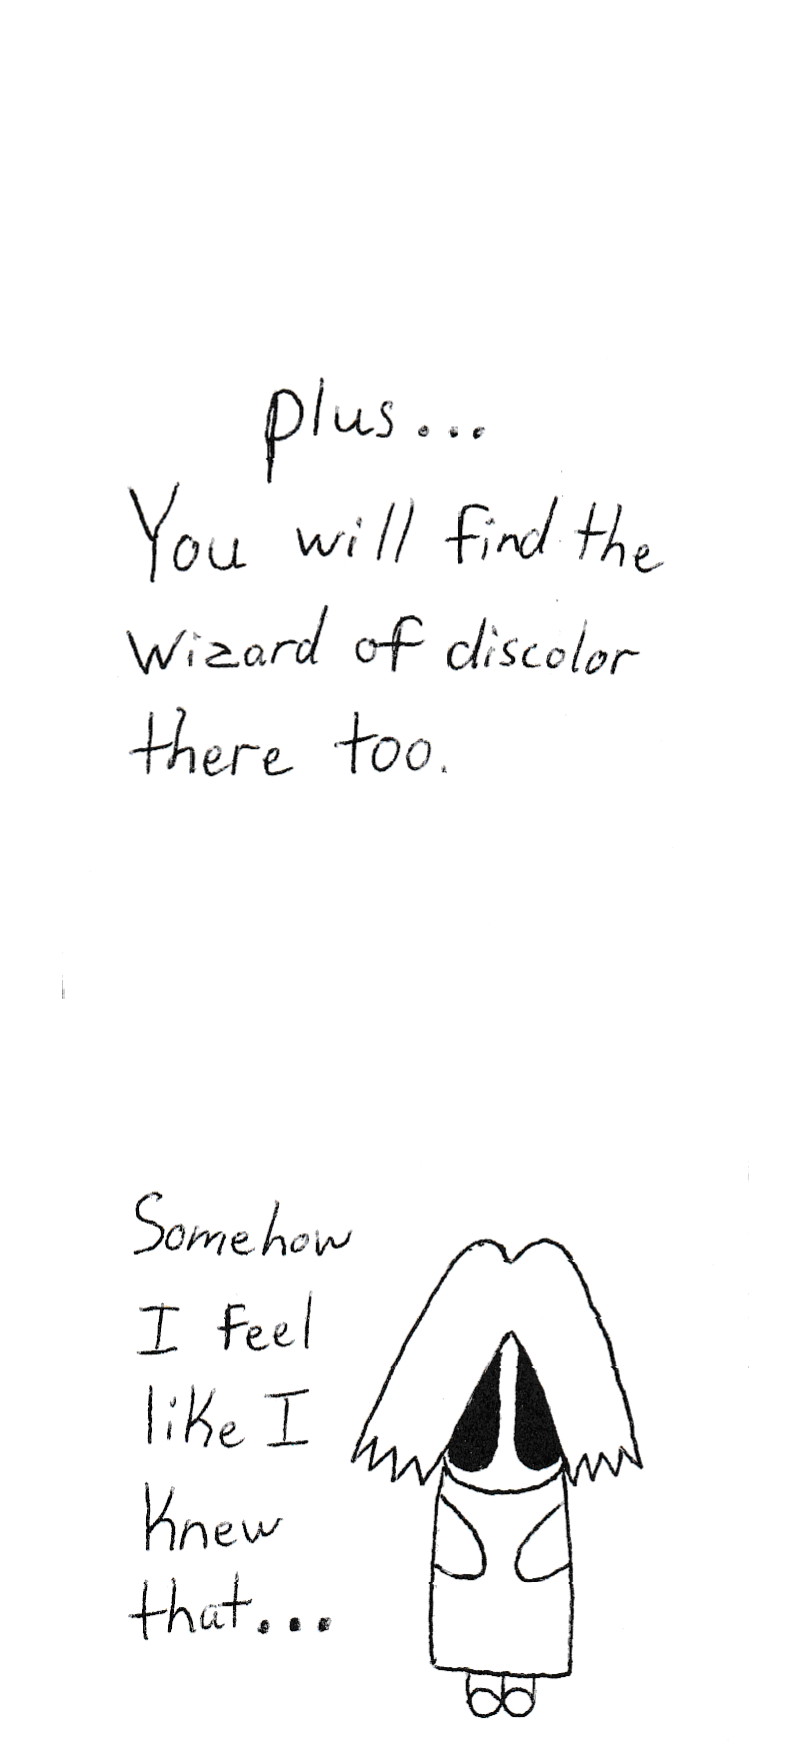 plus...
You will find the
wizard of discolor
there too.
Somehow
I feel
like I
knew
that...